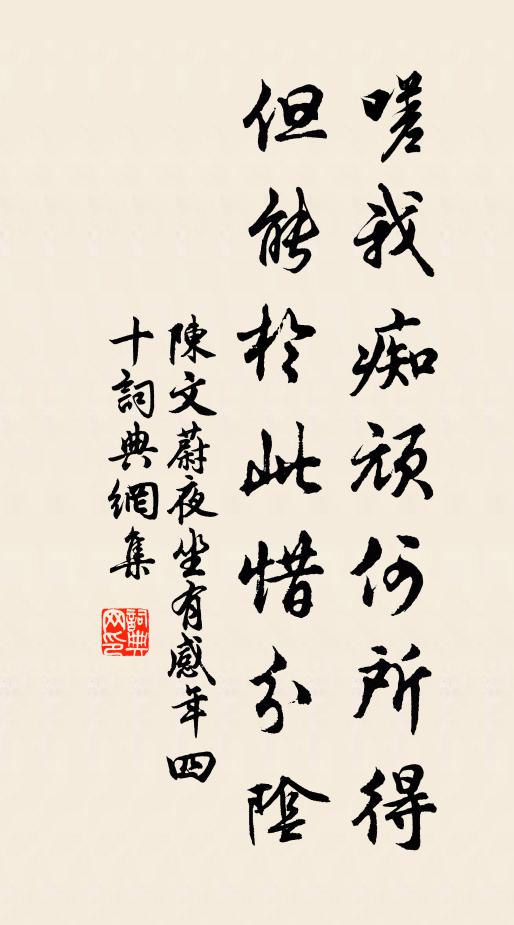 嗟我痴頑何所得
但能於此惜分陰
陳文蔚夜坐有感年四
十詞典網集
詞典网印